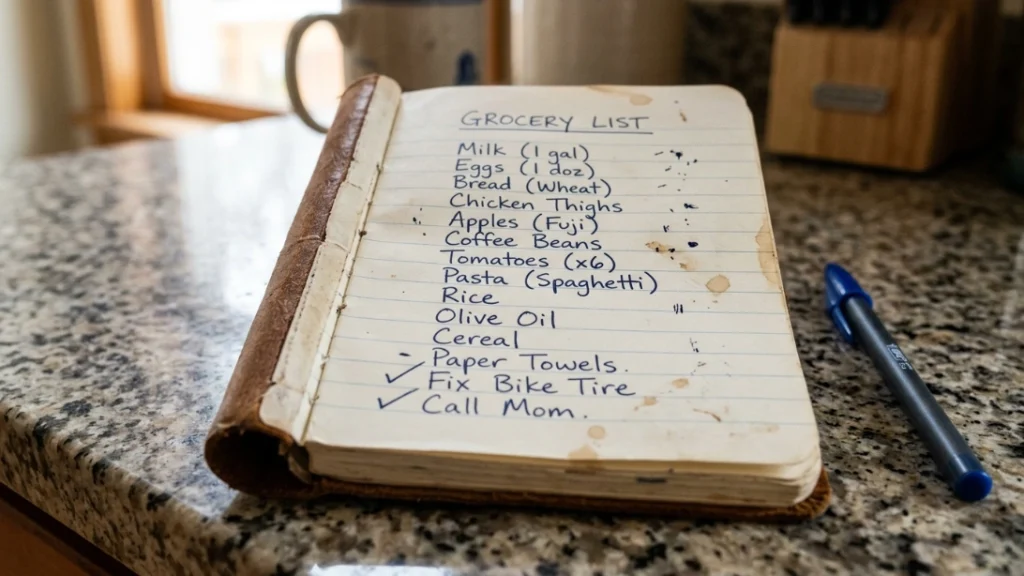 GROCERY LIST
Milk (1 gal)
Eggs (1 doz)
Bread (Wheat)
Chicken Thighs
Apples (Fuji)
Coffee Beans
Tomatoes (x6)
Pasta (Spaghetti)
Rice
Olive Oil
Cereal
Paper Towels.
✓ Fix Bike Tire
✓ Call Mom.